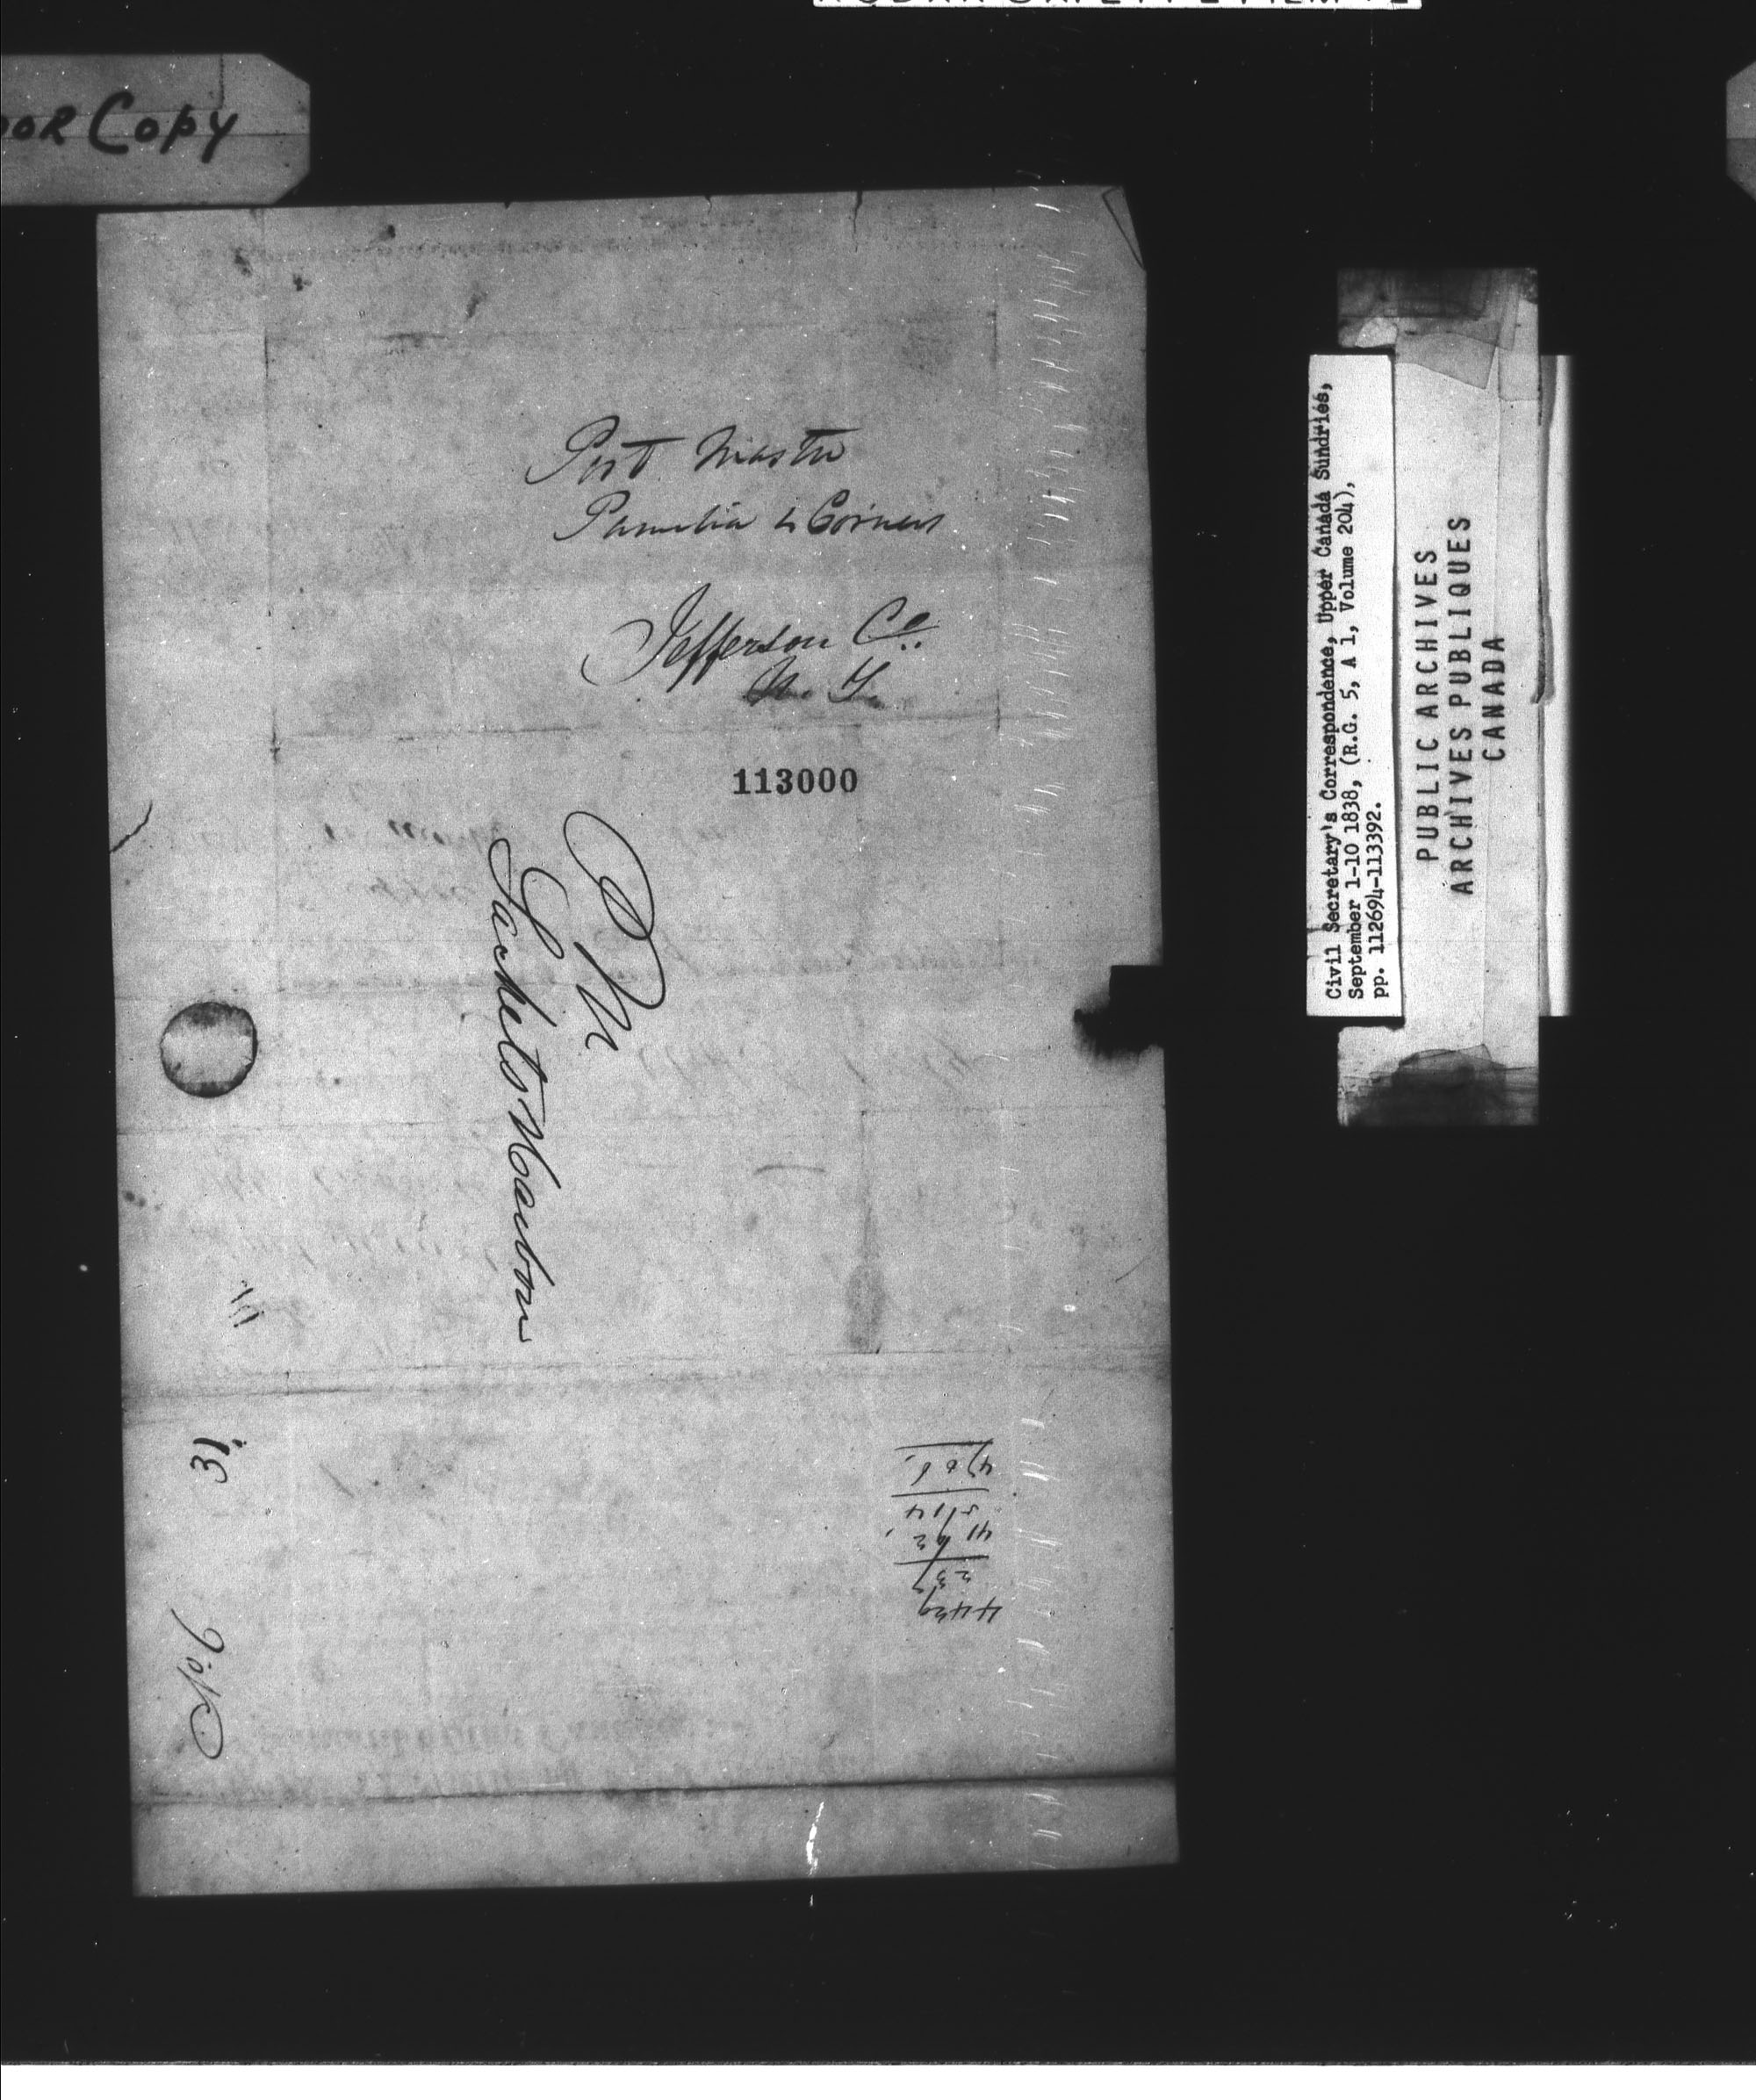 OOR COPY
Post Master
Pamelia 4 Corners
Jefferson Co.
N. Y.
113000
P M
Sackets Harbor
13
4439
23
Civil Secretary's Correspondence, Upper Canada Sundries,
September 1-10 1838, (R.G. 5, A 1, Volume 204),
pp. 112694-113392.
PUBLIC ARCHIVES
ARCHIVES PUBLIQUES
CANADA